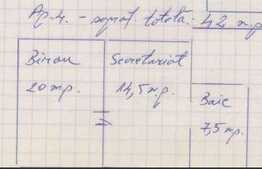 Ap. 4. - suprat. totală: 42 mp
Birou Secretariat
20 mp. 14,5 mp. Baie
7,5 mp.